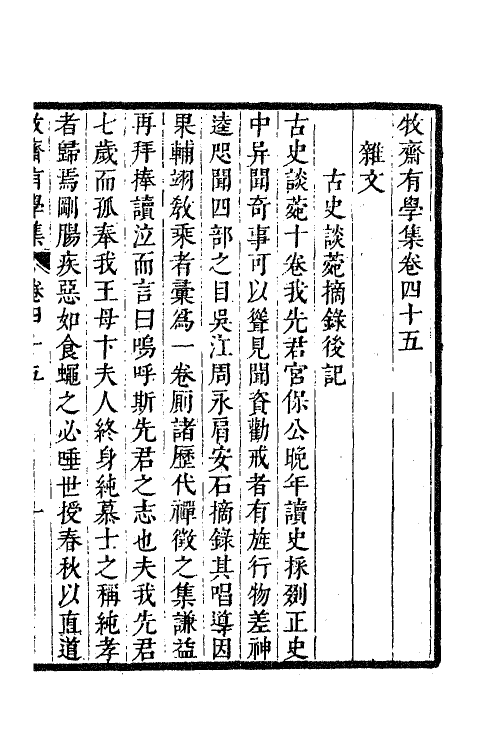 牧齋有學集卷四十五
雜文
古史談菀摘錄後記
古史談菀十卷我先君宮保公晚年讀史採剟正史
中异聞奇事可以聳見聞資勸戒者有旌行物差神
逵咫聞四部之目吳江周永肩安石摘錄其唱導因
果輔翊敎乘者彙爲一卷厠諸歷代禪徵之集謙益
再拜捧讀泣而言曰嗚呼斯先君之志也夫我先君
七歲而孤奉我王母卞夫人終身純慕士之稱純孝
者歸焉剛腸疾惡如食蠅之必唾世授春秋以直道
牧齋有學集 卷四十五 一